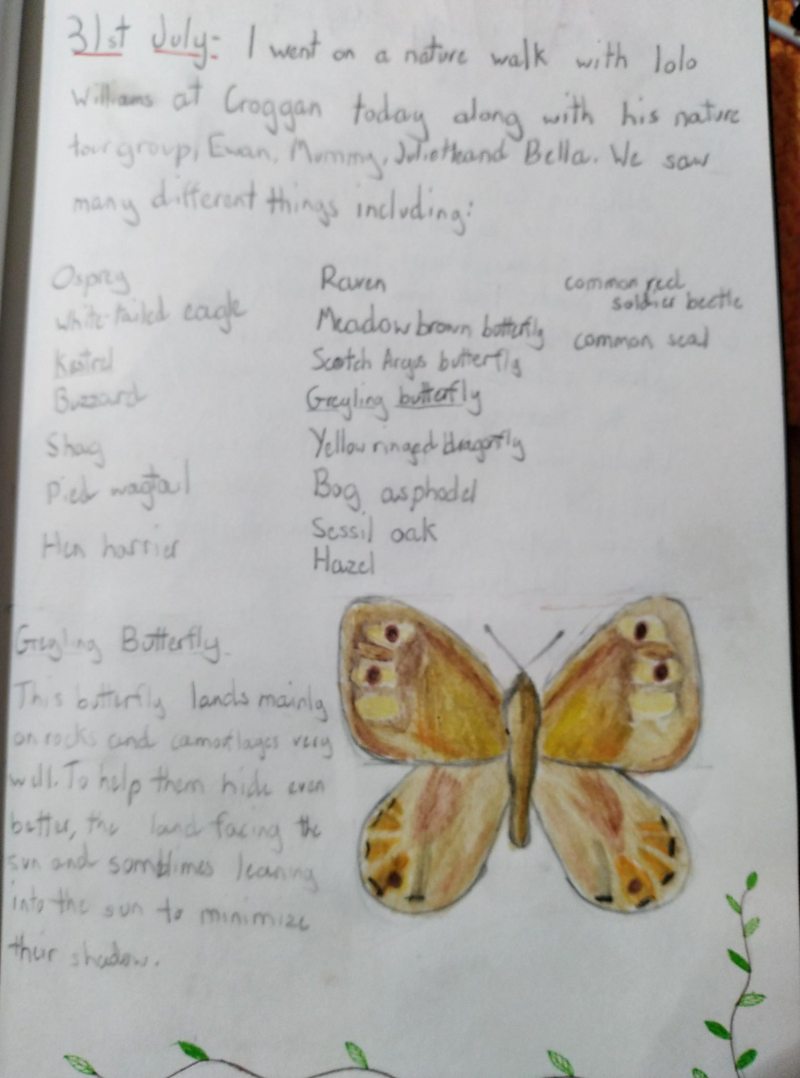 31st July: I went on a nature walk with Iolo
Williams at Croggan today along with his nature
tour group, Ewan, Mummy, Juliette and Bella. We saw
many different things including:
Osprey
White-tailed eagle
Kestrel
Buzzard
Shag
Pied wagtail
Hen harrier
Raven
Meadow brown butterfly
Scotch Argus butterfly
Greyling butterfly
Yellow ringed dragonfly
Bog asphodel
Sessil oak
Hazel
common red
soldier beetle
common seal
Greyling Butterfly
This butterfly lands mainly
on rocks and camouflages very
well. To help them hide even
better, the land facing the
sun and somtimes leaning
into the sun to minimize
their shadow.